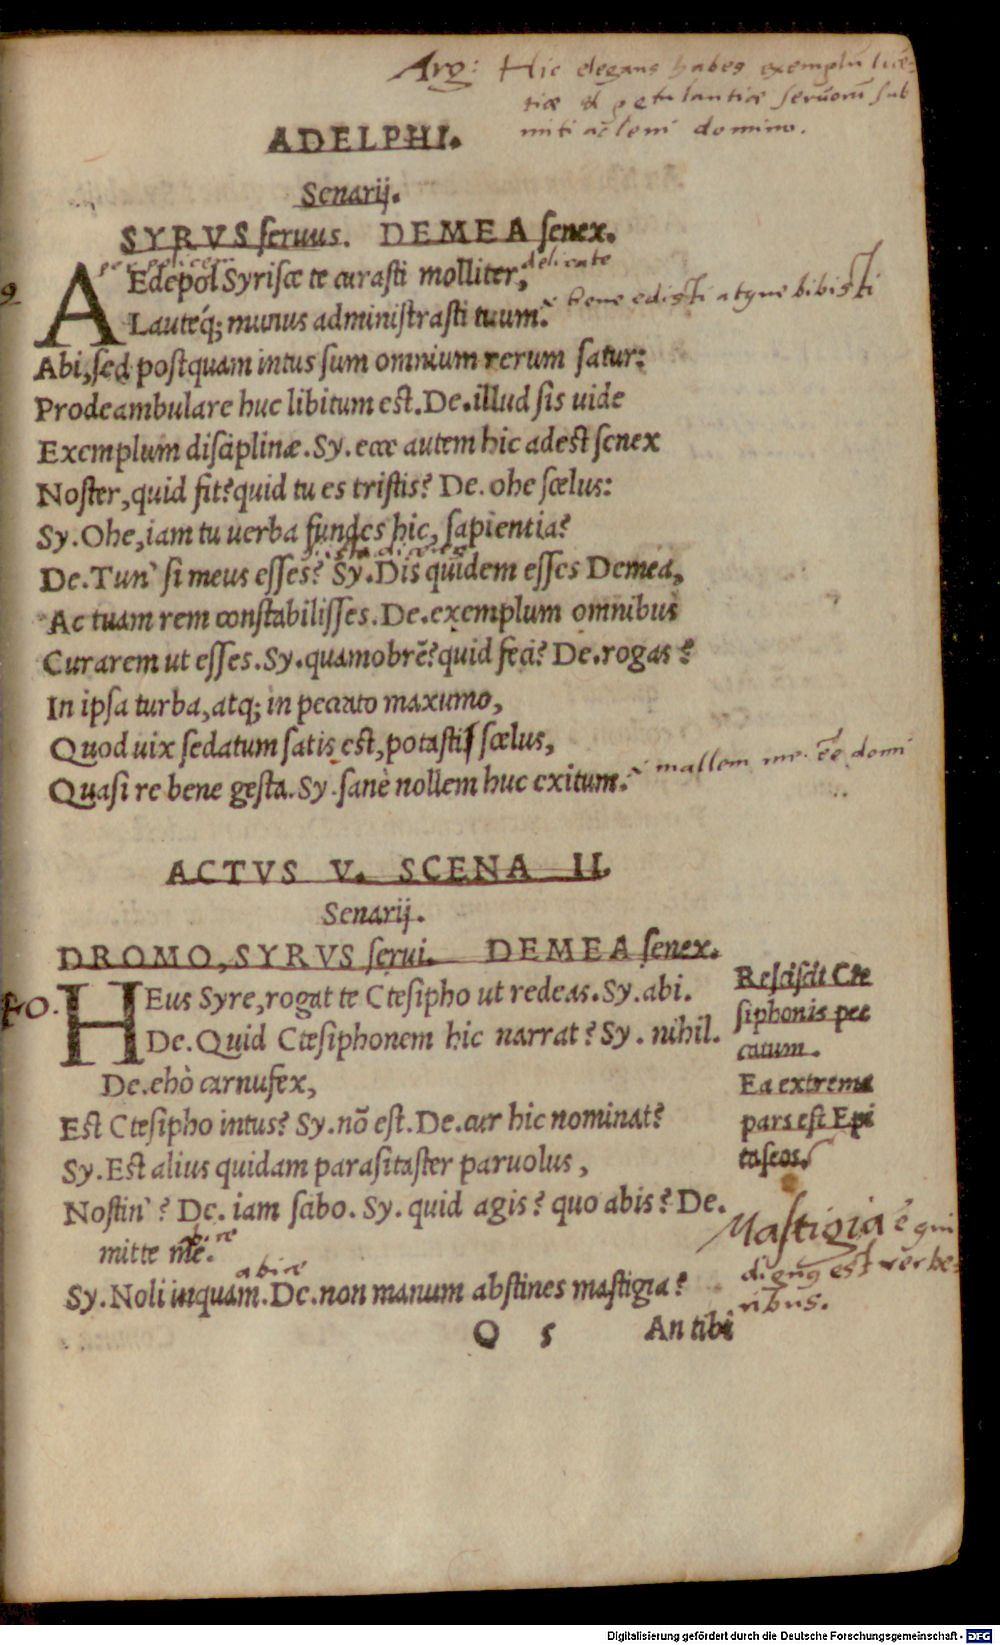 Arg: Hic elegans habes exemplū licē-
tiæ & petulantiæ seruorū sub
miti ac leni domino.
ADELPHI.
Senarij.
SYRVS seruus. DEMEA senex.
per pollicem
delicate
AEdepol Syrisce te curasti molliter,
9
bene edisti atque bibisti
Lauteq́; munus administrasti tuum.
Abi, sed postquam intus sum omnium rerum satur:
Prodeambulare huc libitum est. De. illud sis uide
Exemplum disciplinæ. Sy. ecce autem hic adest senex
Noster, quid fit? quid tu es tristis? De. ohe scelus:
Sy. Ohe, iam tu uerba fundes hic, sapientia?
De. Tun' si meus esses? Sy. Dis quidem esses Demea,
Ac tuam rem constabilisses. De. exemplum omnibus
Curarem ut esses. Sy. quamobrē? quid feci? De. rogas?
In ipsa turba, atq; in peccato maxumo,
Quod uix sedatum satis est, potasti scelus,
mallem me ēē domi
Quasi re bene gesta. Sy. sanè nollem huc exitum.
ACTVS V. SCENA II.
Senarij.
DROMO, SYRVS serui. DEMEA senex.
10.
HEus Syre, rogat te Ctesipho ut redeas. Sy. abi.
De. Quid Ctesiphonem hic narrat? Sy. nihil.
De. ehò carnufex,
Est Ctesipho intus? Sy. nõ est. De. cur hic nominat?
Sy. Est alius quidam parasitaster paruolus,
Nostin'? De. iam scibo. Sy. quid agis? quo abis? De.
abire
mitte me.
abire
Sy. Noli inquam. De. non manum abstines mastigia?
Resciscit Cte
siphonis pec
catum.
Ea extrema
pars est Epi
taseos.
Mastigia ē qui
dignus est verbe-
ribus.
Q 5 An tibi
Digitalisierung gefördert durch die Deutsche Forschungsgemeinschaft - DFG